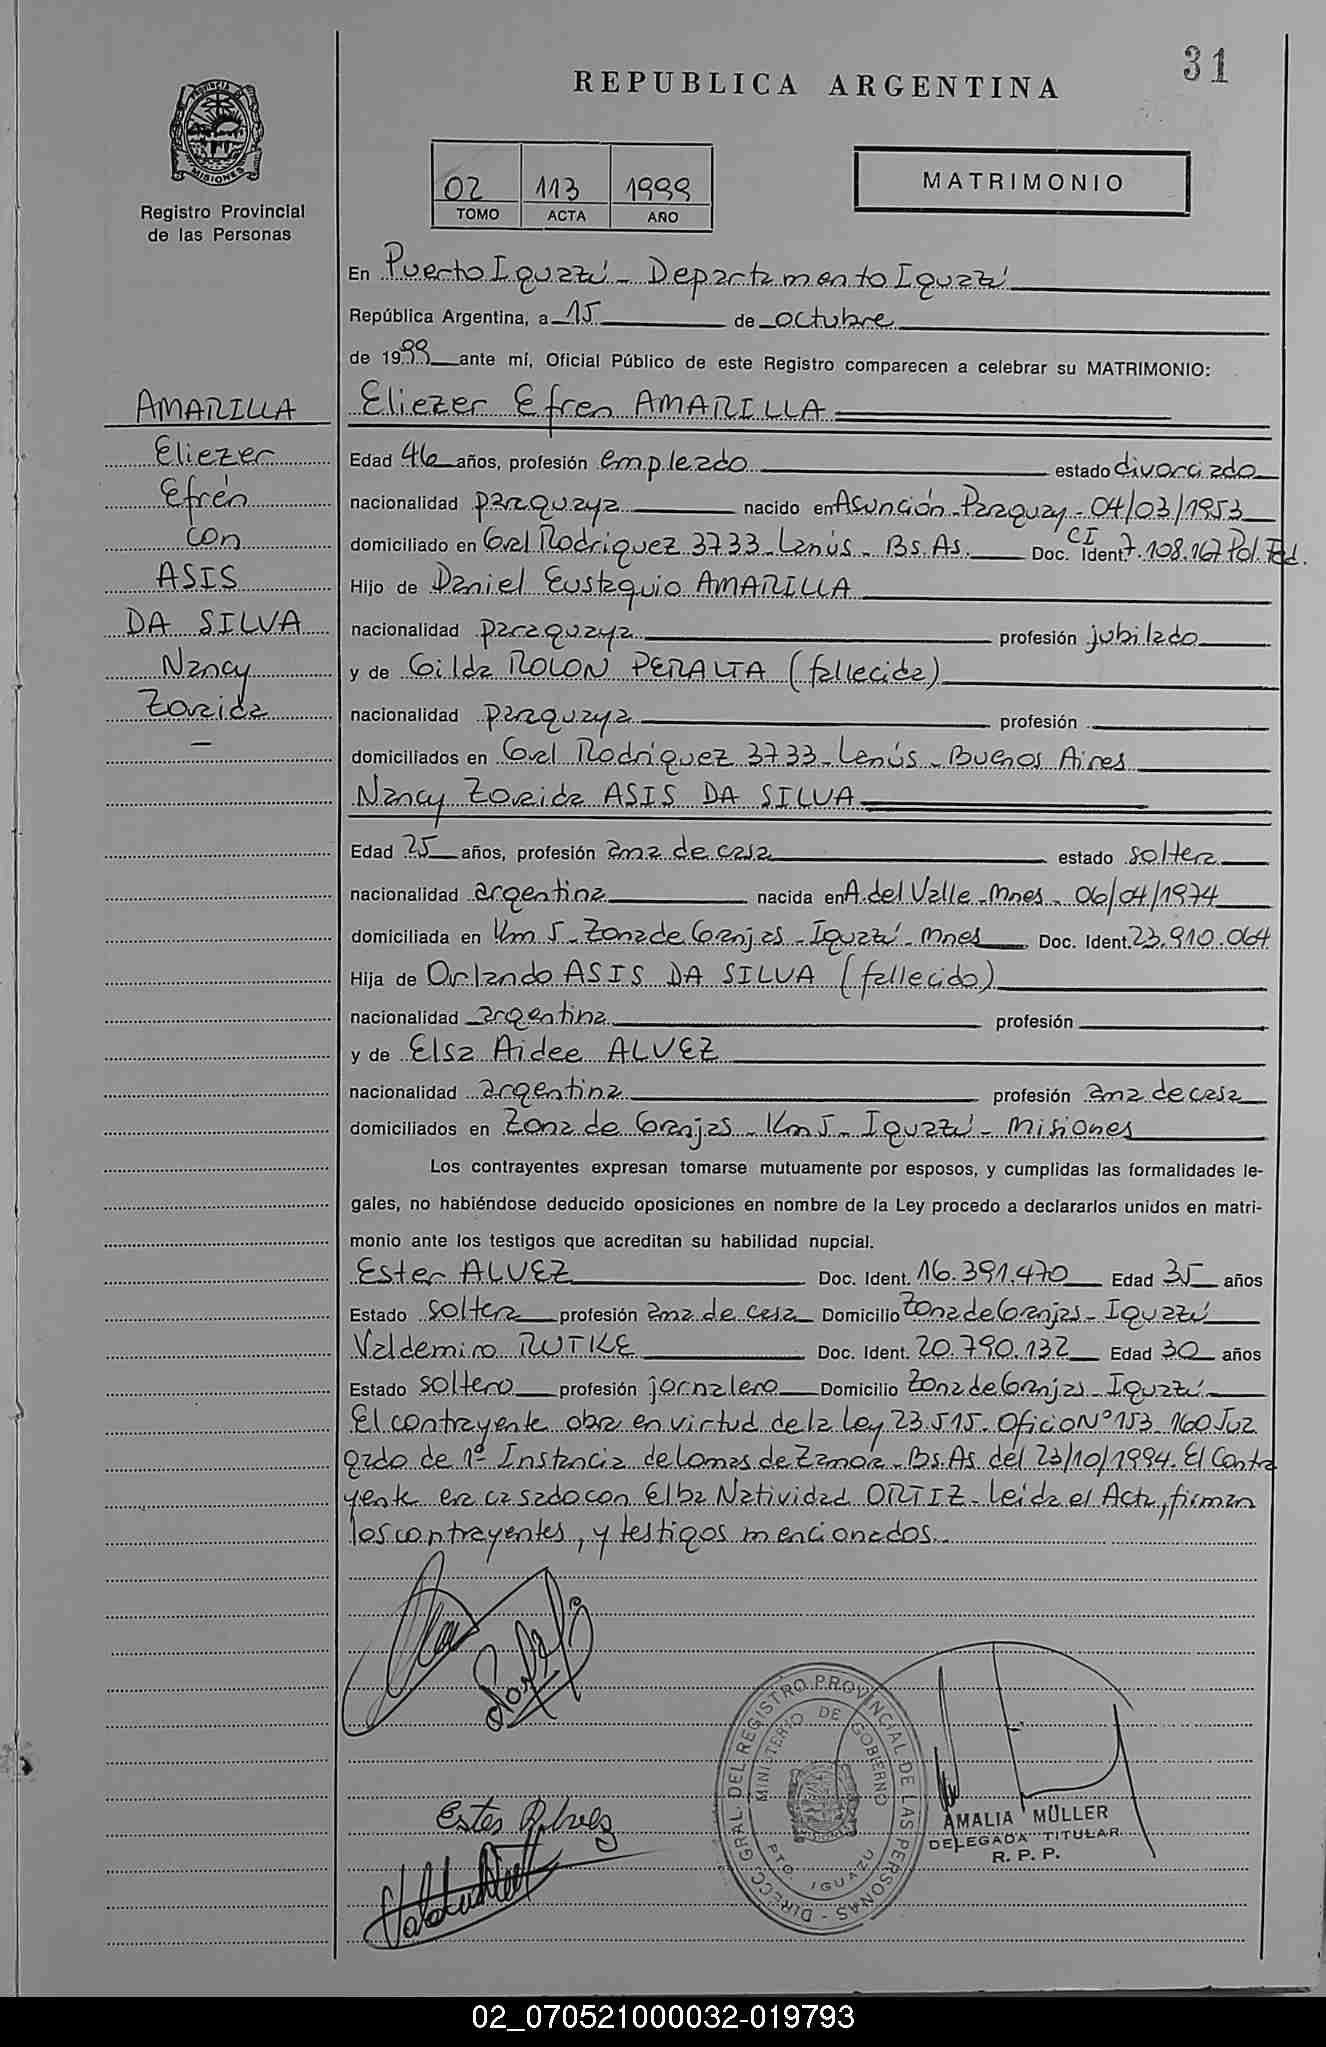 31
REPUBLICA ARGENTINA
PROVINCIA DE MISIONES
Registro Provincial
de las Personas
02 113 1999
TOMO ACTA AÑO
MATRIMONIO
En Puerto Iguazú - Departamento Iguazú
República Argentina, a 15 de octubre
de 1999 ante mí, Oficial Público de este Registro comparecen a celebrar su MATRIMONIO:
AMARILLA
Eliezer
Efrén
con
ASIS
DA SILVA
Nancy
Zoraida
Eliezer Efren AMARILLA
Edad 46 años, profesión empleado estado divorciado
nacionalidad paraguaya nacido en Asunción - Paraguay - 04/03/1953
domiciliado en Gral Rodriguez 3733 - Lanús - Bs.As. Doc. CI Ident. 7.108.167 Pol. Fed.
Hijo de Daniel Eustaquio AMARILLA
nacionalidad paraguaya profesión jubilado
y de Gilda ROLON PERALTA (fallecida)
nacionalidad paraguaya profesión
domiciliados en Gral Rodriguez 3733 - Lanús - Buenos Aires
Nancy Zoraida ASIS DA SILVA
Edad 25 años, profesión ama de casa estado soltera
nacionalidad argentina nacida en A. del Valle - Mnes - 06/04/1974
domiciliada en Km 5 - Zona de Granjas - Iguazú - Mnes Doc. Ident. 23.910.064
Hija de Orlando ASIS DA SILVA (fallecido)
nacionalidad argentina profesión
y de Elsa Aidee ALVEZ
nacionalidad argentina profesión ama de casa
domiciliados en Zona de Granjas - Km 5 - Iguazú - Misiones
Los contrayentes expresan tomarse mutuamente por esposos, y cumplidas las formalidades le-
gales, no habiéndose deducido oposiciones en nombre de la Ley procedo a declararlos unidos en matri-
monio ante los testigos que acreditan su habilidad nupcial.
Ester ALVEZ Doc. Ident. 16.391.470 Edad 35 años
Estado soltera profesión ama de casa Domicilio Zona de Granjas - Iguazú
Valdemiro RUTKE Doc. Ident. 20.790.132 Edad 30 años
Estado soltero profesión jornalero Domicilio Zona de Granjas - Iguazú
El contrayente obra en virtud de la Ley 23.515 - Oficio Nº 153 - 160 Juz
gado de 1º Instancia de Lomas de Zamora - Bs.As del 23/10/1994. El Contra
yente era casado con Elba Natividad ORTIZ - Leida el Acta, firman
los contrayentes, y testigos mencionados.
DIRECC. GRAL. DEL REGISTRO PROVINCIAL DE LAS PERSONAS -
MINISTERIO DE GOBIERNO
PTO. IGUAZU
AMALIA MÜLLER
DELEGADA TITULAR
R. P. P.
02_070521000032-019793